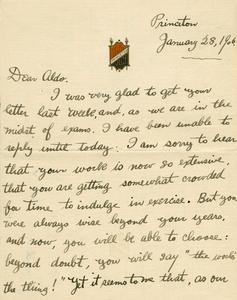 Princeton
January 28, 1906
Dear Aldo.
I was very glad to get your
letter last week, and, as we are in the
midst of exams. I have been unable to
reply until today. I am sorry to hear
that your work is now so extensive,
that you are getting somewhat crowded
for time to indulge in exercise. But you
were always wise beyond your years,
and now, you will be able to choose:
beyond doubt, you will say "the work's
the thing!" Yet it seems to me that, as our